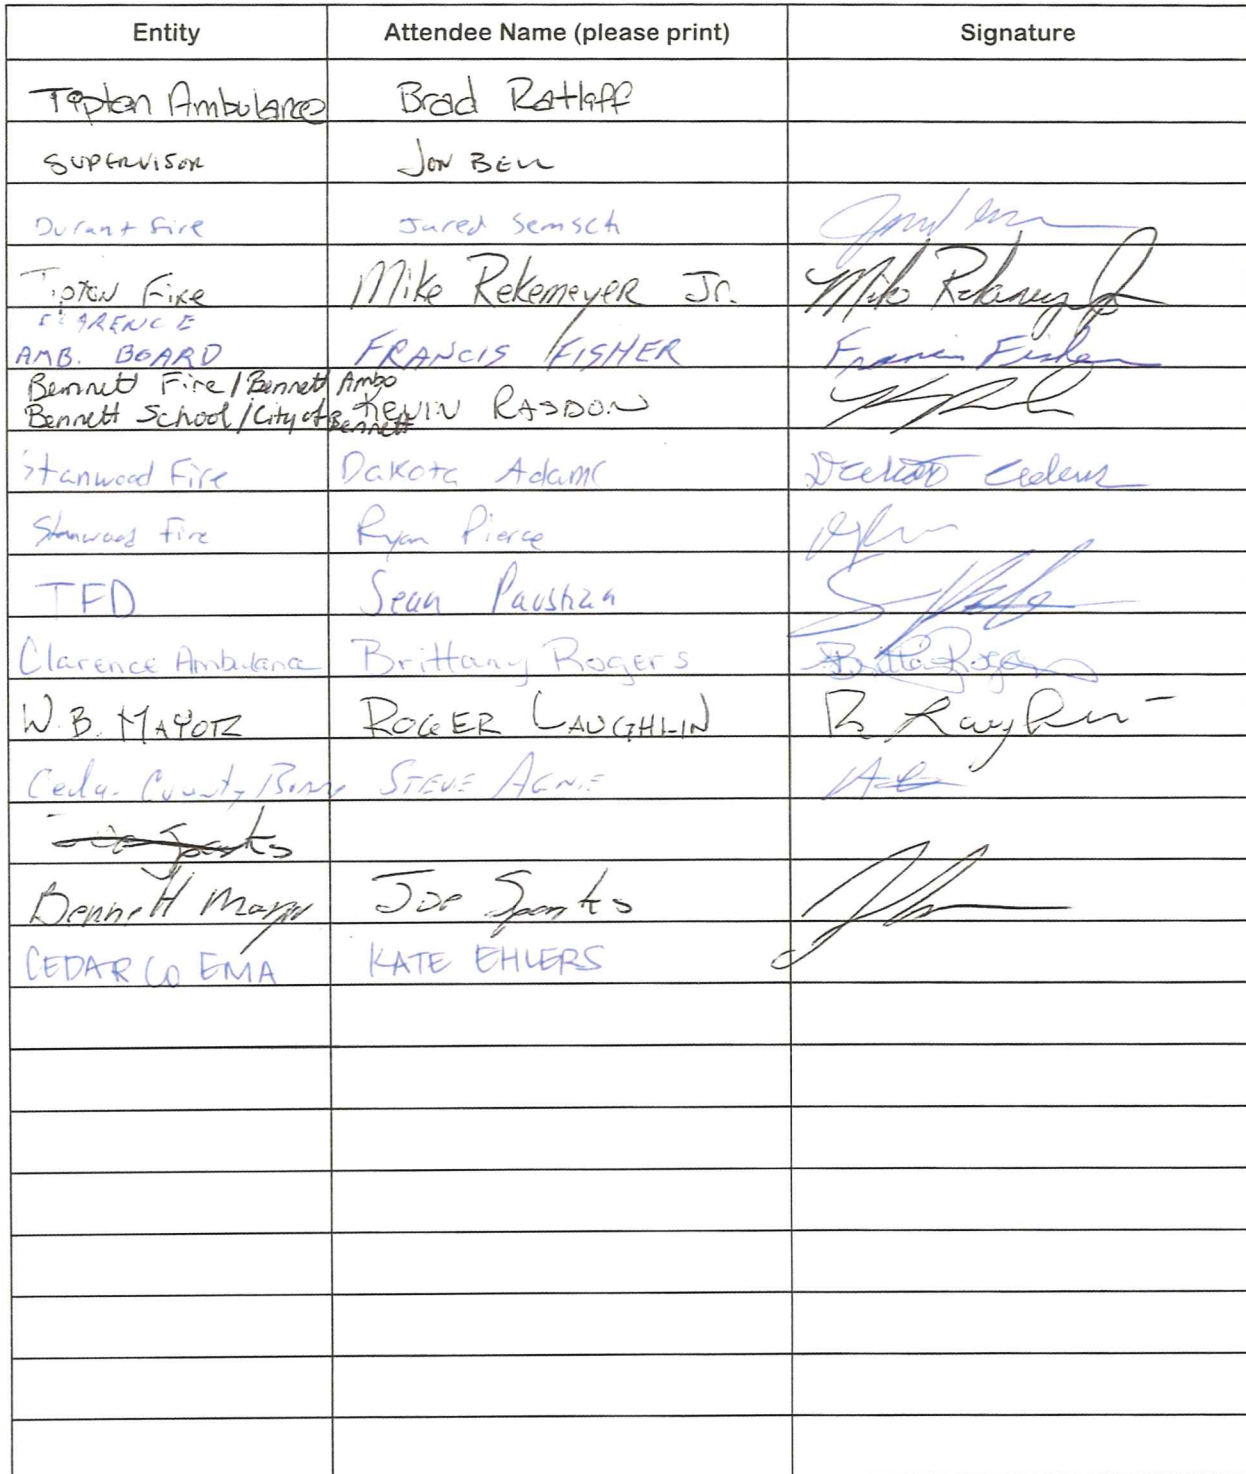 Entity Attendee Name (please print) Signature
Tipton Ambulance Brad Ratliff
SUPERVISOR JON BELL
Durant fire Jared Semsch
Tipton Fire Mike Rekemeyer Jr.
CLARENCE
AMB. BOARD FRANCIS FISHER Francis Fisher
Bennett Fire / Bennett Ambo
Bennett School / City of Bennett KEVIN RASDON
Stanwood Fire Dakota Adams
Stanwood Fire Ryan Pierce
TFD Sean Paustian
Clarence Ambulance Brittany Rogers
W.B. MAYOR ROGER LAUGHLIN
Cedar County STEVE AGNE
Sparks
Bennett Mayor Joe Sparks
CEDAR CO EMA KATE EHLERS